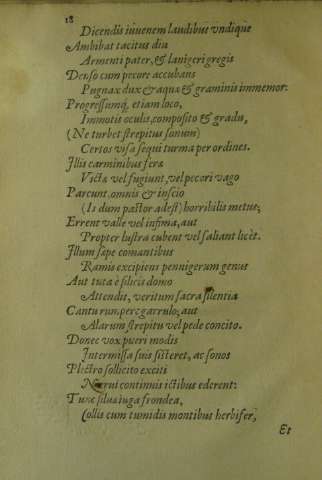 18
Dicendis iuuenem laudibus vndique
Ambibat tacitus diu
Armenti pater, & lanigeri gregis
Denso cum pecore accubans
Pugnax dux & aquæ & graminis immemor:
Progressumq; etiam loco,
Immotis oculis, composito & gradu,
(Ne turbet strepitus sonum)
Certos visa sequi turma per ordines.
Illis carminibus feræ
Victæ vel fugiunt, vel pecori vago
Parcunt, omnis & inscio
(Is dum pastor adest) horribilis metus;
Errent valle vel infima, aut
Propter lustra cubent vel saliant licèt.
Illum sæpe comantibus
Ramis excipiens pennigerum genus
Aut tuta è silicis domo
Attendit, veritum sacra silentia
Cantu rumpere garrulo; aut
Alarum strepitu vel pede concito.
Donec vox pueri modis
Intermissa suis sisteret, ac sonos
Plectro sollicito exciti
Nerui continuis ictibus ederent:
Tunc silua iuga frondea,
Collis cum tumidis montibus herbifer,
Et